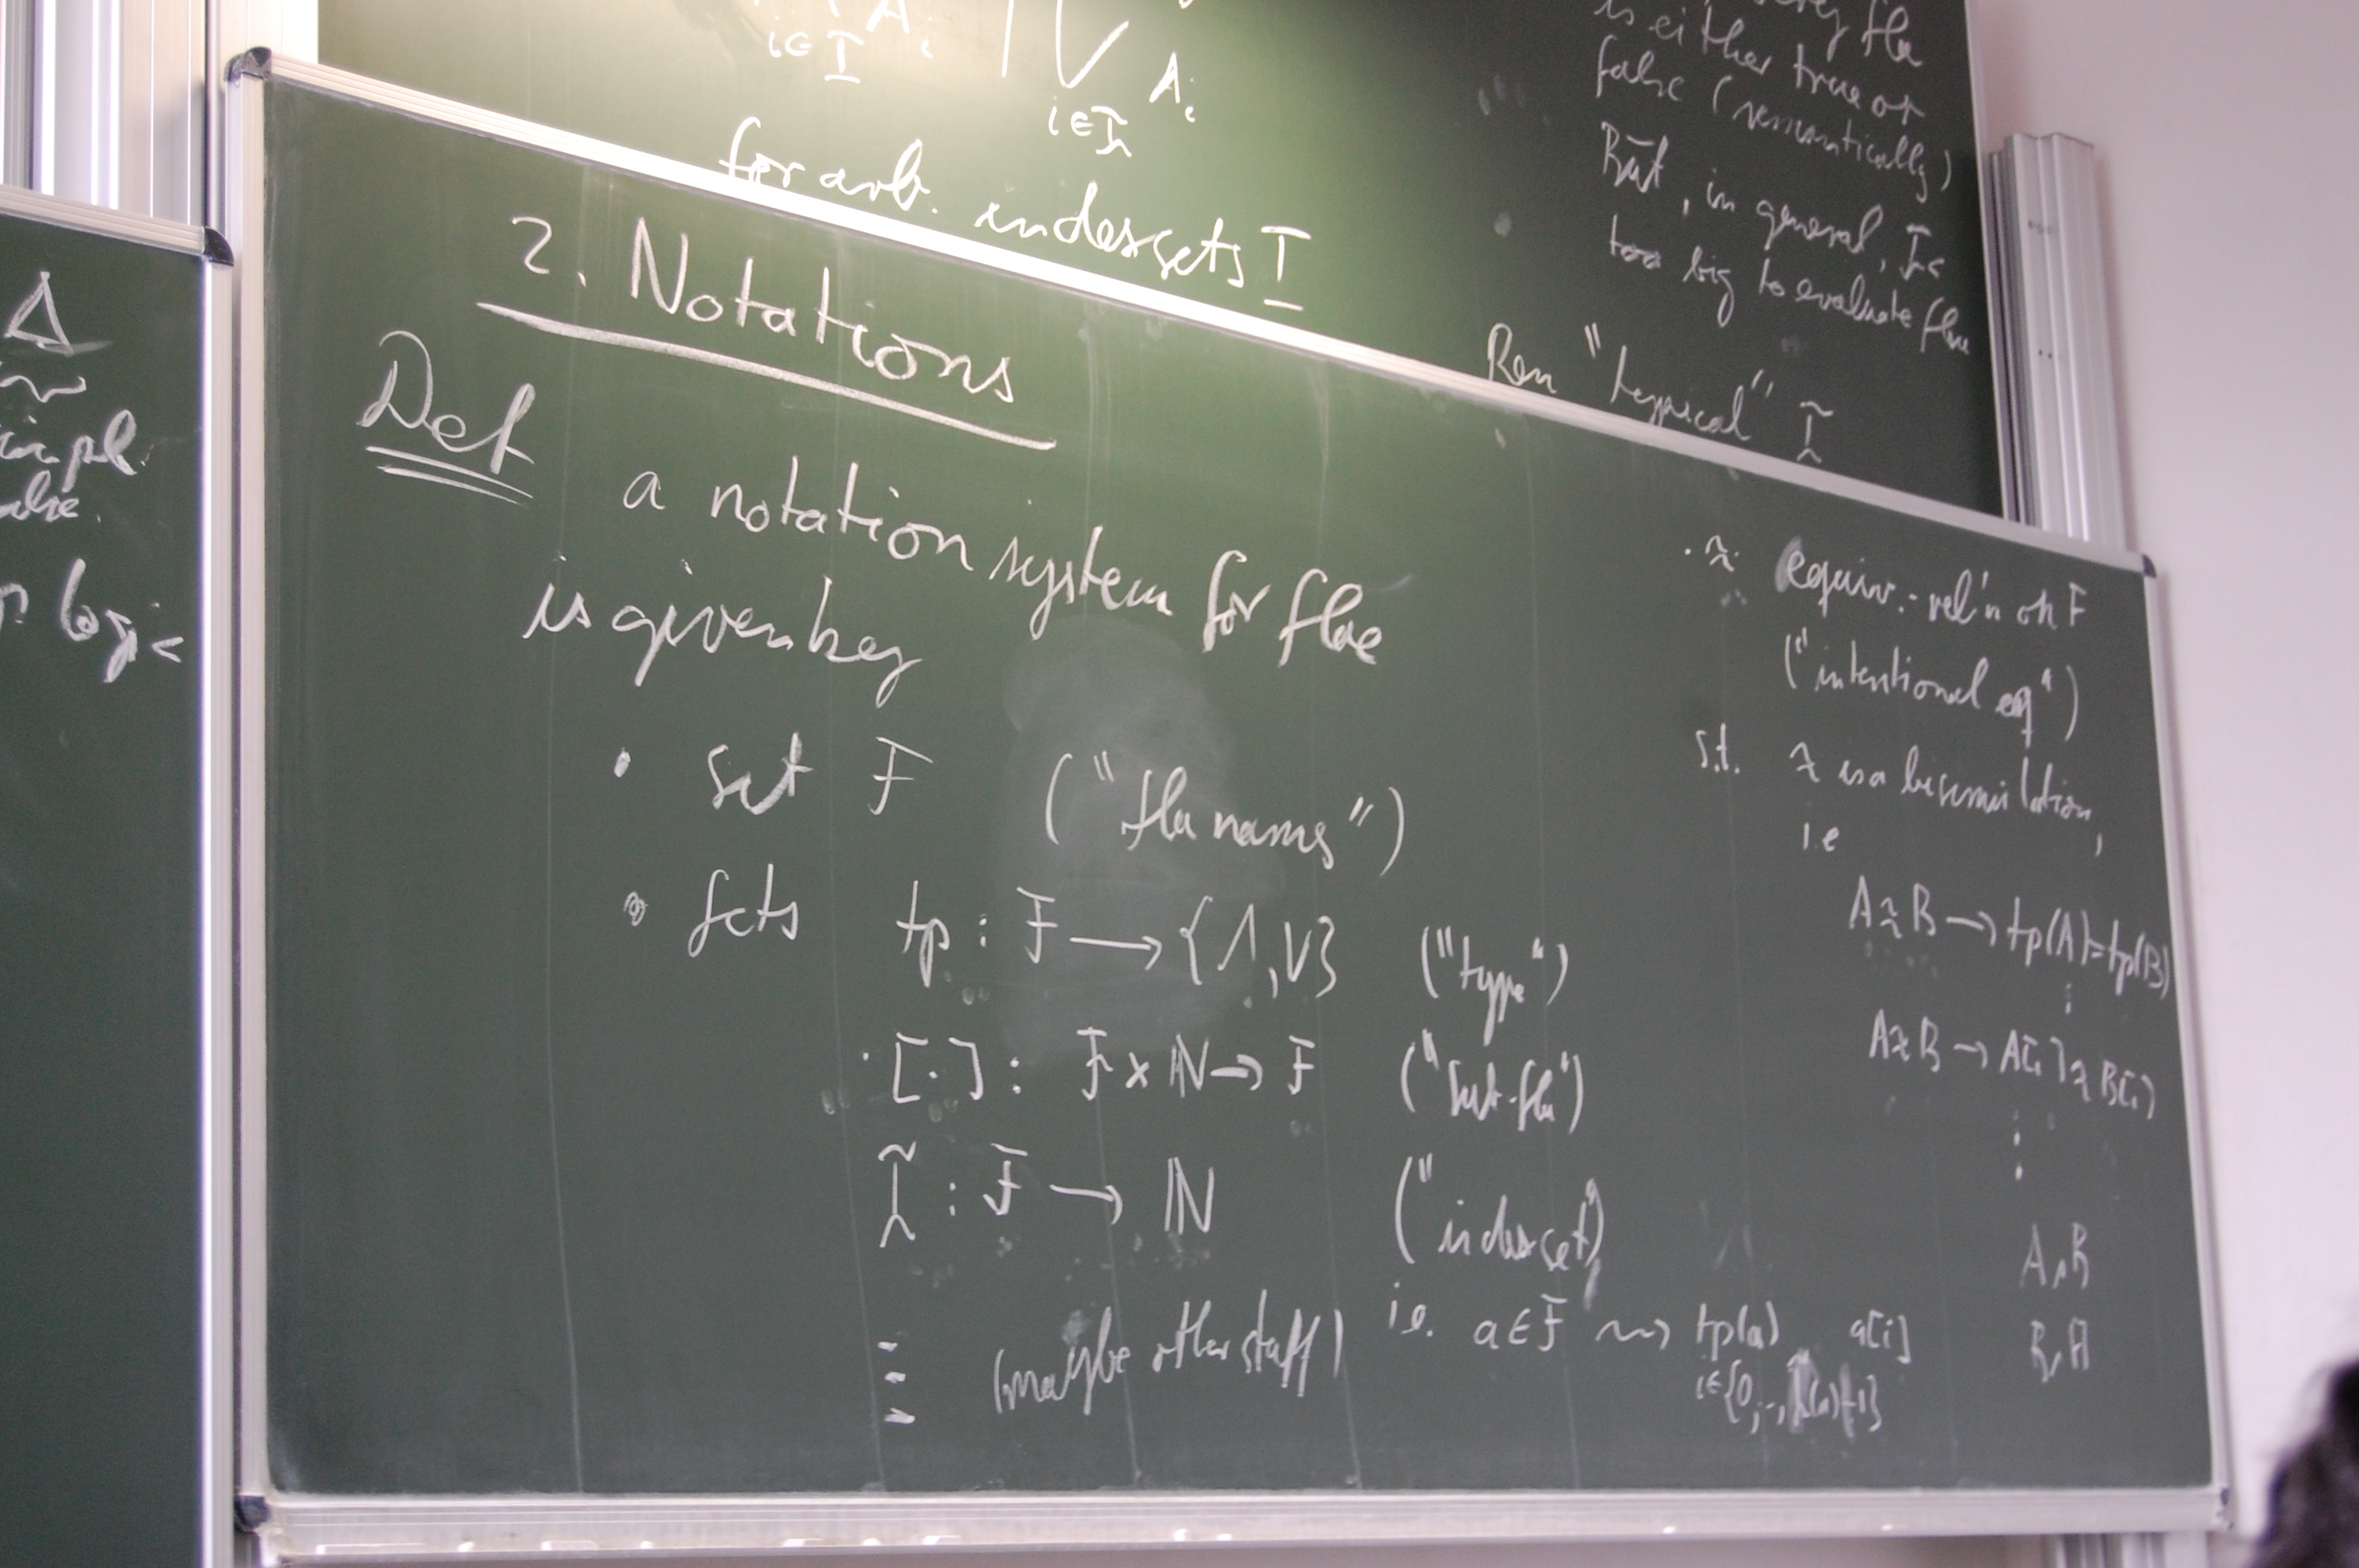 i∈I A_i | ⋁ i∈I A_i
for arb. indexsets I
fla
is either true or
false (semantically)
But, in general, I is
too big to evaluate flae
Rem "typical" Ĩ
Δ
logic
2. Notations
Def a notation system for flae
is given by
• set F ("fla names")
• fcts tp : F ⟶ {⋀, ⋁} ("type")
·[·] : F × ℕ → F ("sub-fla")
Ĩ : F ⟶ ℕ ("indexset")
(maybe other stuff) i.e. a ∈ F ⇝ tp(a) a[i]
i∈{0,..,Ĩ(a)-1}
· ≈ equiv.-rel'n on F
("intentional eq")
s.t. ≈ is a bisimulation,
i.e
A ≈ B → tp(A)=tp(B)
⋮
A ≈ B → A[i] ≈ B[i]
⋮
A∧B
B∧A